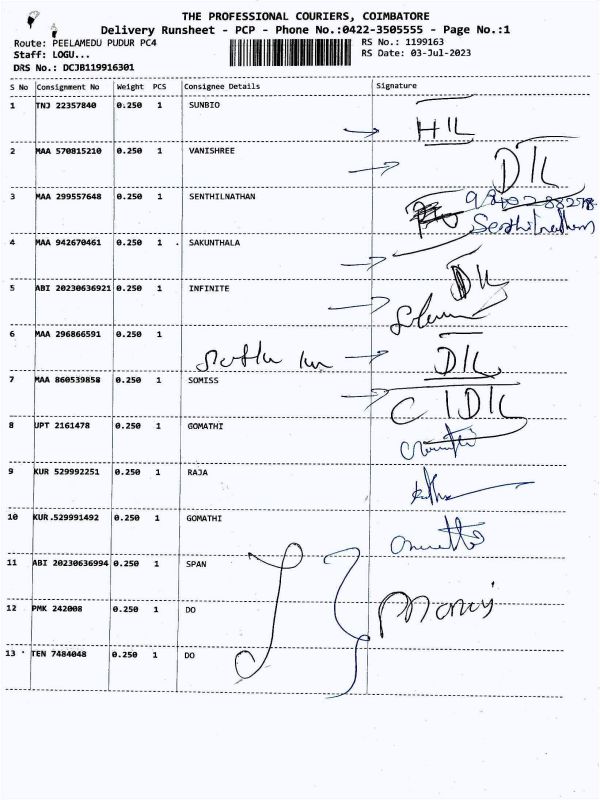 THE PROFESSIONAL COURIERS, COIMBATORE
Delivery Runsheet - PCP - Phone No.:0422-3505555 - Page No.:1
Route: PEELAMEDU PUDUR PC4 RS No.: 1199163
Staff: LOGU... RS Date: 03-Jul-2023
DRS No.: DCJB119916301
S No Consignment No Weight PCS Consignee Details Signature
1 TNJ 22357840 0.250 1 SUNBIO
2 MAA 570815210 0.250 1 VANISHREE
DIL
3 MAA 299557648 0.250 1 SENTHILNATHAN
Senthilnathan
4 MAA 942670461 0.250 1 SAKUNTHALA
DIL
5 ABI 20230636921 0.250 1 INFINITE
6 MAA 296866591 0.250 1
DIL
7 MAA 860539858 0.250 1 SOMISS
8 UPT 2161478 0.250 1 GOMATHI
9 KUR 529992251 0.250 1 RAJA
10 KUR 529991492 0.250 1 GOMATHI
11 ABI 20230636994 0.250 1 SPAN
12 PMK 242008 0.250 1 DO
Manoj
13 TEN 7484048 0.250 1 DO